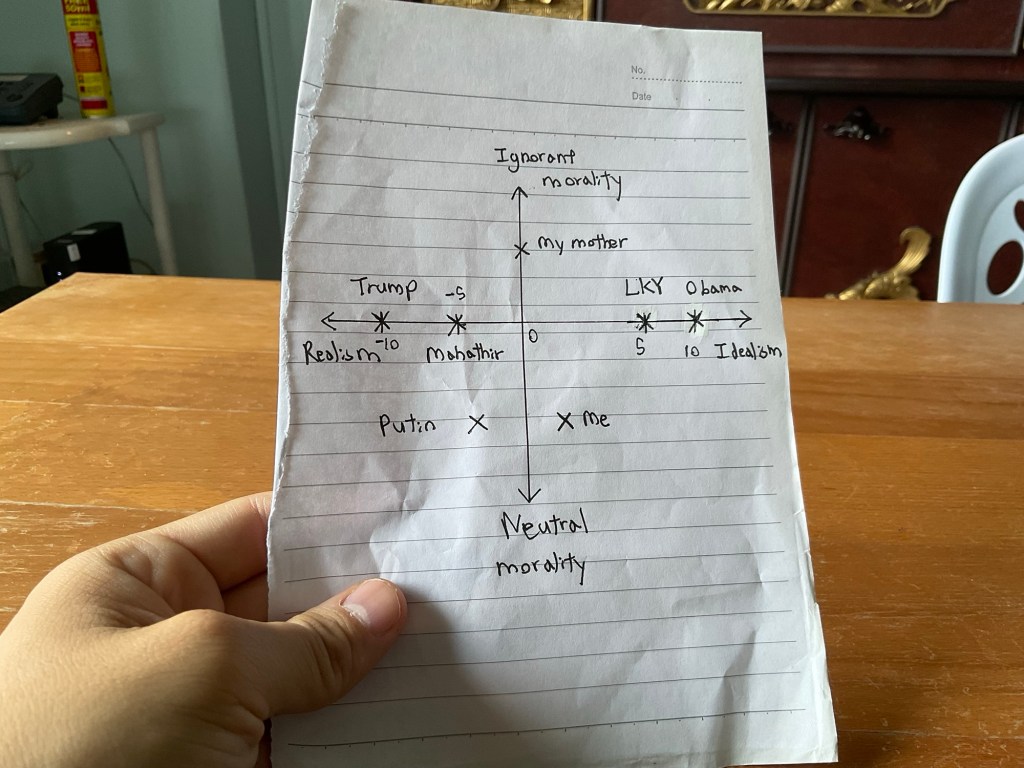 No.
Date
Ignorant
morality
my mother
Trump -5 LKY Obama
0
Realism -10 Mahathir 5 10 Idealism
Putin me
Neutral
morality